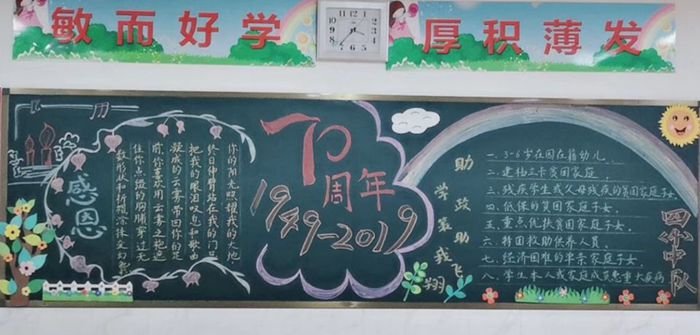 敏而好学
厚积薄发
感恩
你的阳光照耀我的大地
终日伸臂站在我的门口
把我的眼泪叹息和歌曲
凝成的云雾带回你的足
前你喜欢用云雾之袍遮
住你点缀的胸脯穿过无
数形状和折褶涂抹变幻
70
周年
1949-2019
助学政策助我飞翔
一、3-6岁在园在籍幼儿
二、建档立卡贫困家庭、
三、残疾学生或父母残疾的贫困家庭子女
四、低保的贫困家庭子女、
五、重点优抚困家庭子女、
六、特困救助供养人员、
七、经济困难的单亲家庭子女、
八、学生本人或家庭成员患重大疾病
中队